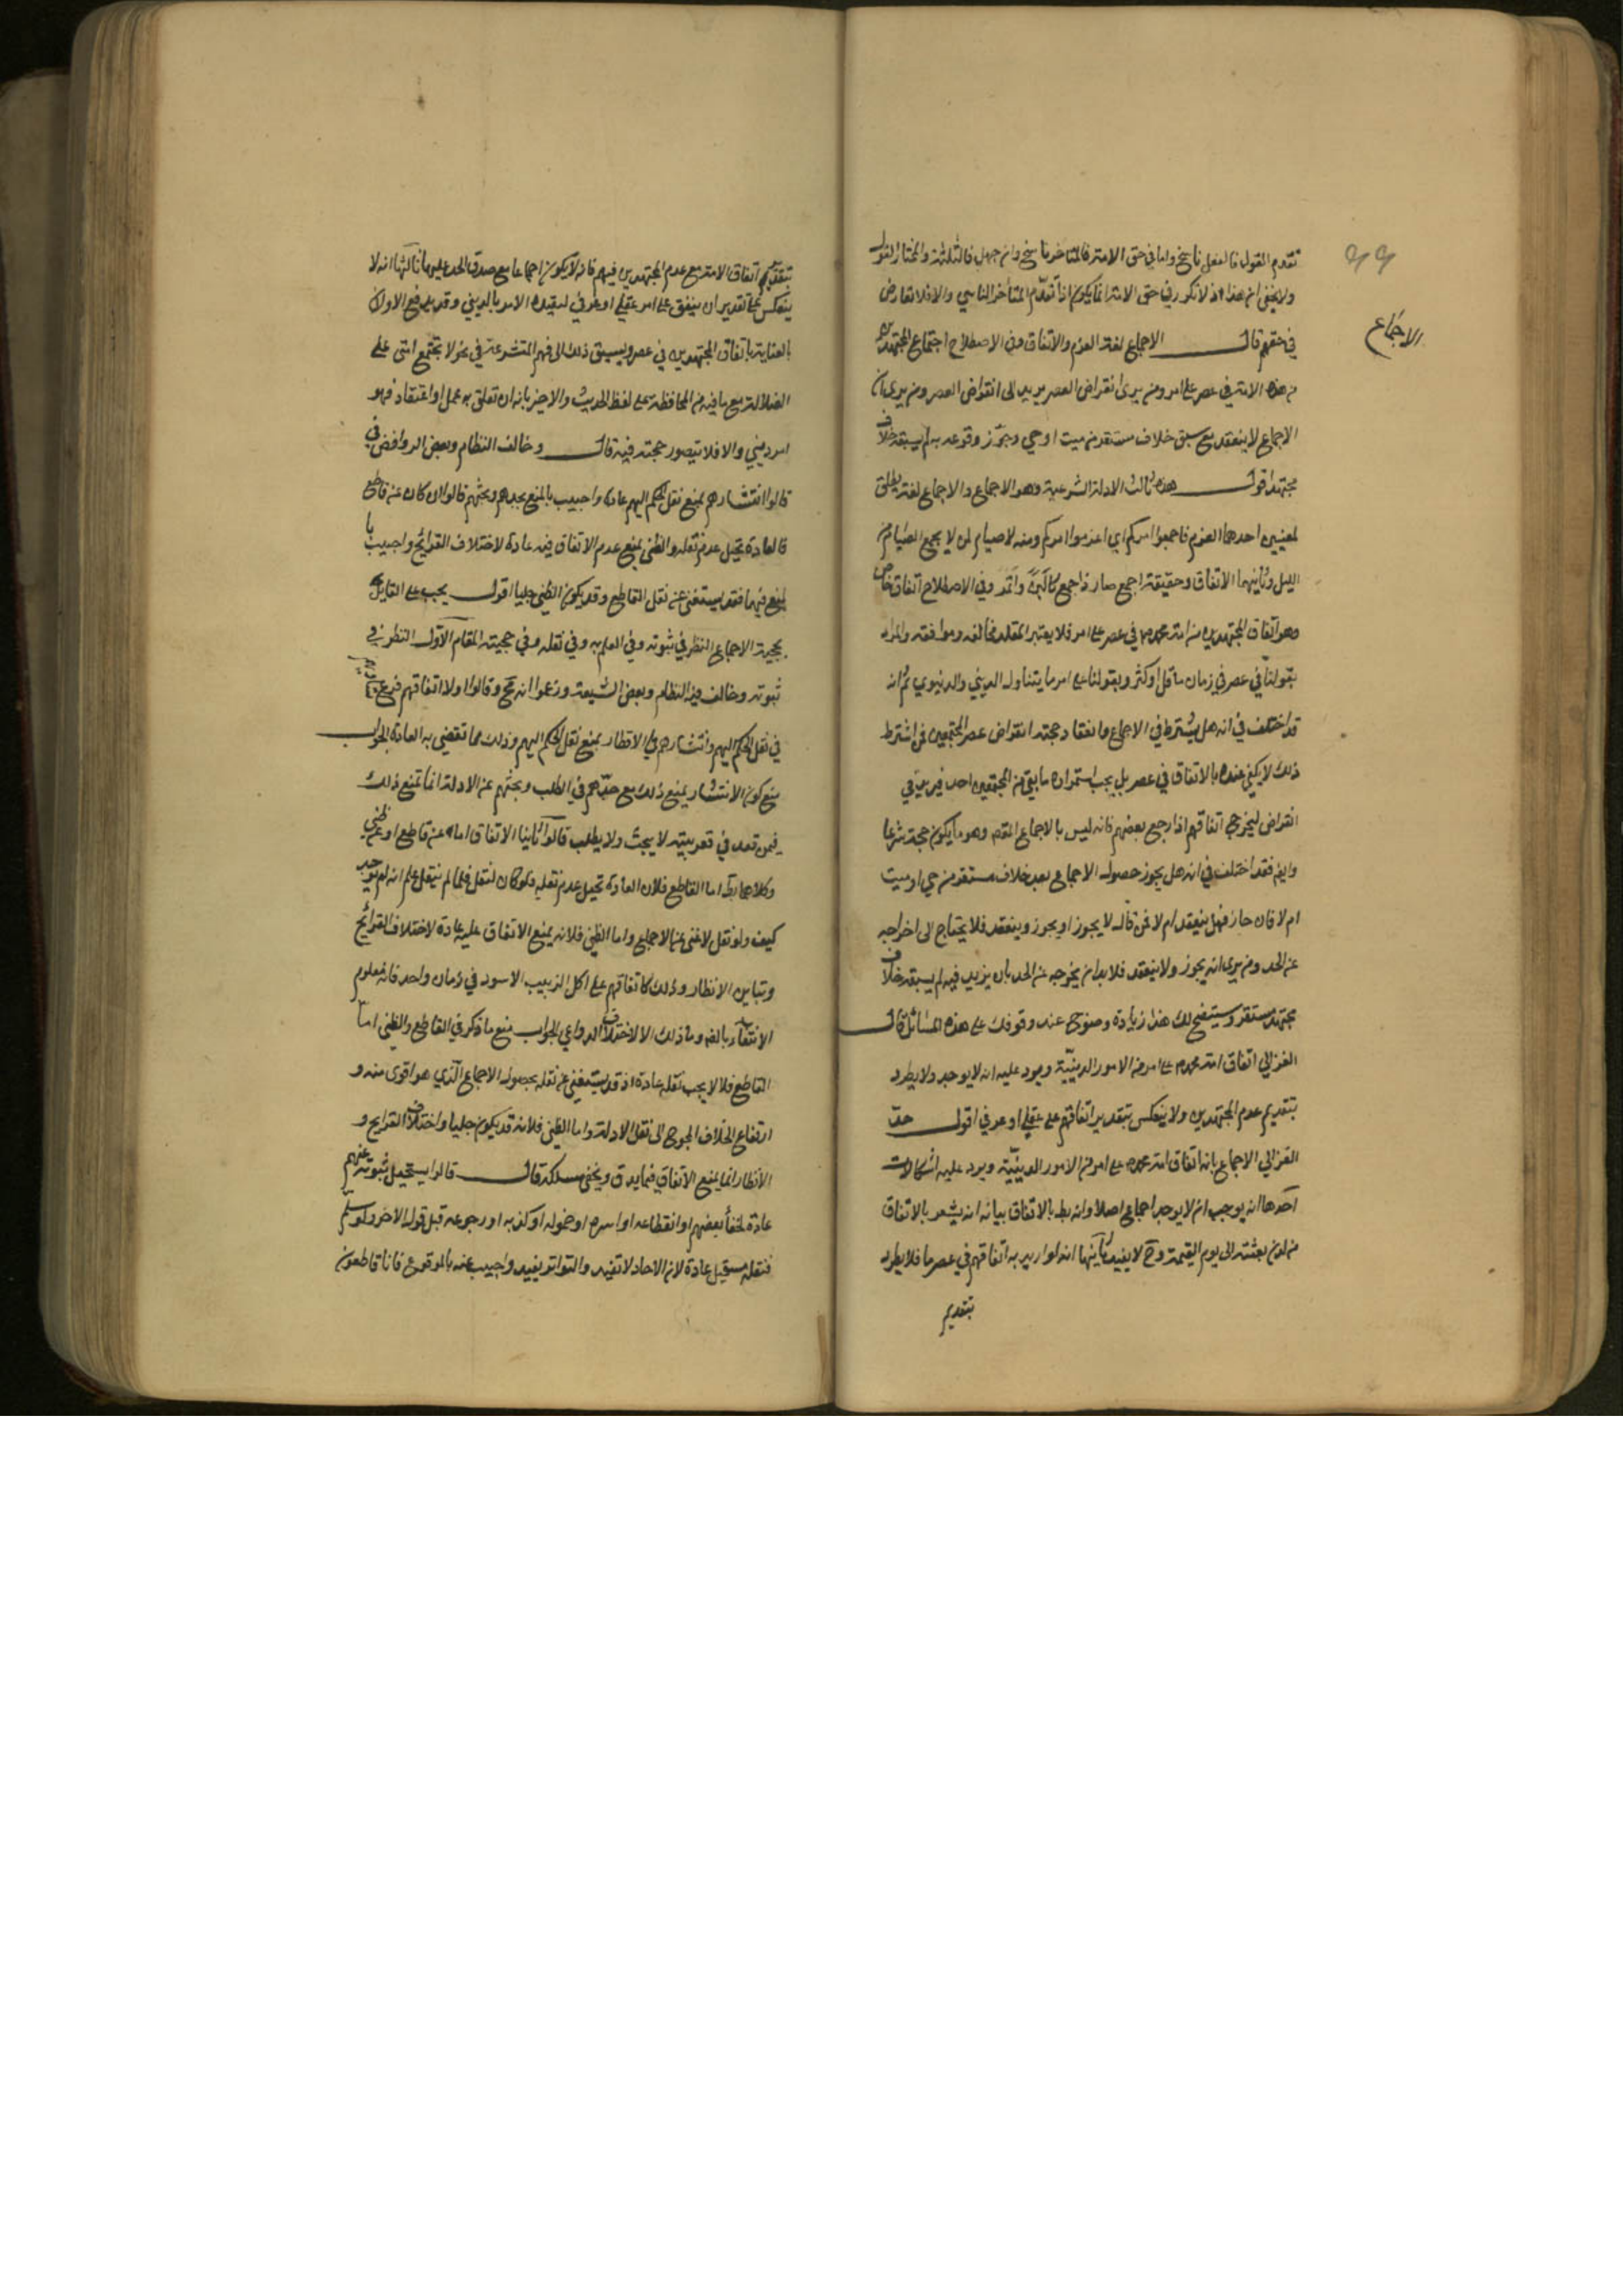 تقدم القول فالفعل ناسخ واما في حق الامة فالمتاخر ناسخ وان جهل فالثلثة والمختار القول
ولا يخفى ان هذا اذ لا نكور في حق الامة انما يكون اذا تقدم المتاخر التاسي والا فلا تعارض
الاجماع
في حقهم قال الاجماع لغة العزم والاتفاق وفي الاصطلاح اجتماع المجتهدين
من هذه الامة في عصر على امر ومن يرى انقراض العصر يزيد الى انقراض العصر ومن يرى ان
الاجماع لا ينعقد مع سبق خلاف مستقر من ميت او حي وجوز وقوعه يزيد لم يسبقه خلاف
مجتهد اقول هذه ثالث الادلة الشرعية وهو الاجماع والاجماع لغة يطلق
لمعنيين احدهما العزم فاجمعوا امركم اي اعزموا امركم ومنه لا صيام لمن لا يجمع الصيام من
الليل وثانيهما الاتفاق وحقيقة اجمع صار ذا جمع كالبن واتمر وفي الاصطلاح اتفاق خاص
وهو اتفاق المجتهدين من امة محمد في عصر على امر فلا يعتبر المقلد مخالفه وموافقه والمراد
بقولنا في عصر في زمان ما قل او كثر وبقولنا على امر ما يتناول الديني والدنيوي ثم انه
قد اختلف في انه هل يشترط في الاجماع وانعقاد حجته انقراض عصر المجتمعين فمن اشترط
ذلك لا يكفي عنده بالاتفاق في عصر بل يجب استمراره ما بقي من المجتمعين احد فيزيد في
انقراض ليخرج اتفاقهم اذا رجع بعضهم فانه ليس بالاجماع المقصود وهو ما يكون حجة شرعا
وايضا فقد اختلف في انه هل يجوز حصول الاجماع بعد خلاف مستقر من حي او ميت
ام لا فان جاز فهل ينعقد ام لا فمن قال لا يجوز او يجوز وينعقد فلا يحتاج الى اخراجه
عن الحد ومن يرى انه يجوز ولا ينعقد فلا بد ان يخرجه عن الحد بان يزيد فيه لم يسبقه خلاف
مجتهد مستقر وسيتضح لك هذا زيادة وضوح عند وقوفك على هذه المسائل قال
الغزالي اتفاق امة محمد على امر من الامور الدينية ويرد عليه انه لا يوجد ولا يطرد
بتقديم عدم المجتهدين ولا ينعكس بتقدير اتفاقهم على عقلي او عرفي اقول حد
الغزالي الاجماع بانه اتفاق امة محمد على امر من الامور الدينية ويرد عليه اشكالات
احدها انه يوجب ان لا يوجد اجماع اصلا وانه بط بالاتفاق بيانه انه يشعر بالاتفاق
من لدن بعثته الى يوم القيمة وح لا يفيد ثانيها انه لو اريد به اتفاقهم في عصر ما فلا يطرد
بتقديم
بتقديم اتفاق الامة مع عدم المجتهدين فيهم فانه لا يكون اجماعا مع صدق الحد عليه ثالثها انه لا
ينعكس على تقدير ان يتفق على امر عقلي او عرفي لتقييده الامر بالديني وقد يدفع الاولان
بالعناية باتفاق المجتهدين في عصر ويسبق ذلك الى فهم المتشرعة في نحو لا تجتمع امتي على
الضلالة مع ما فيه من المحافظة على لفظ الحديث والاخير بانه ان تعلق به عمل او اعتقاد فهو
امر ديني والا فلا يتصور حجته فيه قال وخالف النظام وبعض الروافض في
قالوا انتشارهم يمنع نقل الحكم اليهم عادة واجيب بالمنع بجدهم وبحثهم قالوا ان كان عن قاطع
فالعادة تحيل عدم نقله والظني يمنع عدم الاتفاق فيه عادة لاختلاف القرائح واجيب با
لمنع فيهما فقد يستغني عن نقل القاطع وقد يكون الظني جليا اقول يجب على القائل
بحجية الاجماع النظر في ثبوته وفي العلم به وفي نقله وفي حجيته المقام الاول النظر في
ثبوته وخالف فيه النظام وبعض الشيعة وزعموا انه مح وقالوا اولا اتفاقهم فرع
في نقل الحكم اليهم وانتشارهم في الاقطار يمنع نقل الحكم اليهم وذلك مما تقضي به العادة الجواب
منع كون الانتشار يمنع ذلك مع جدهم في الطلب وبحثهم عن الادلة انما يمنع ذلك
فيمن قعد في قعر بيته لا يبحث ولا يطلب قالوا ثانيا الاتفاق اما عن قاطع او عن ظني
وكلاهما بط اما القاطع فلان العادة تحيل عدم نقله ولو كان لنقل فلما لم ينقل علم انه لم يوجد
كيف ولو نقل لاغنى عن الاجماع واما الظني فلانه يمنع الاتفاق عليه عادة لاختلاف القرائح
وتباين الانظار وذلك كاتفاقهم على اكل الزبيب الاسود في زمان واحد فانه معلوم
الانتفاء بالضرورة وما ذلك الا لاختلاف الدواعي الجواب منع ما ذكر في القاطع والظني اما
القاطع فلا لا يجب نقله عادة اذ قد يستغني عن نقله بحصول الاجماع الذي هو اقوى منه و
ارتفاع الخلاف المحوج الى نقل الادلة واما الظني فلانه قد يكون جليا واختلاف القرايح و
الانظار انما يمنع الاتفاق فيما يدق ويخفى مسلكه قال قالوا يستحيل ثبوته عنهم
عادة لخفا بعضهم او انقطاعه او اسره او خموله او كذبه او رجوعه قبل قول الاخر ولو سلم
فنقله مستحيل عادة لان الاحاد لا تفيد والتواتر يفيد واجيب عنه بالوقوع فانا قاطعون